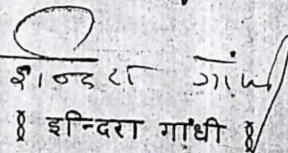 इन्दिरा गांधी
इन्दिरा गांधी